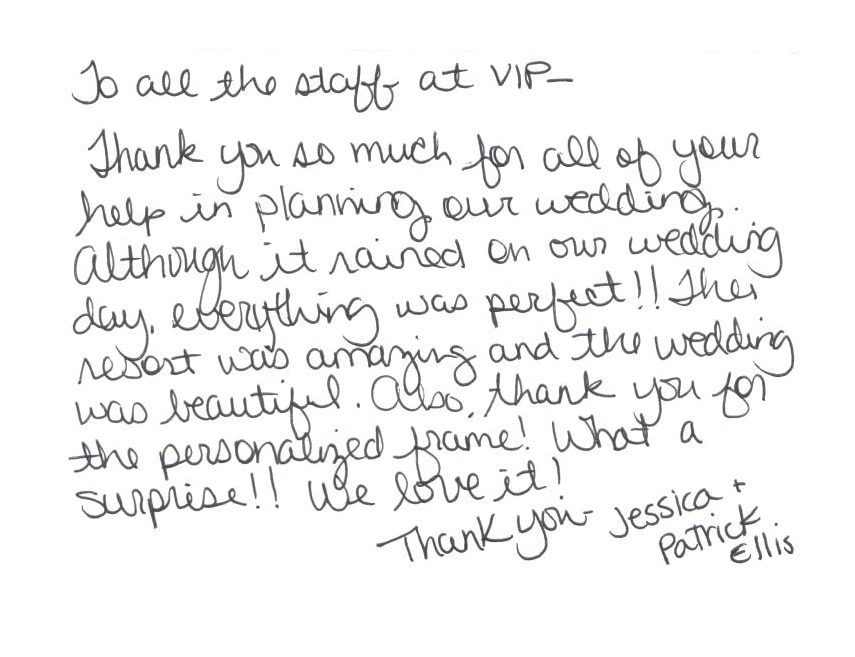 To all the staff at VIP-
Thank you so much for all of your
help in planning our wedding.
Although it rained on our wedding
day, everything was perfect!! The
resort was amazing and the wedding
was beautiful. Also, thank you for
the personalized frame! What a
surprise!! We love it!
Thank you- Jessica +
Patrick
Ellis